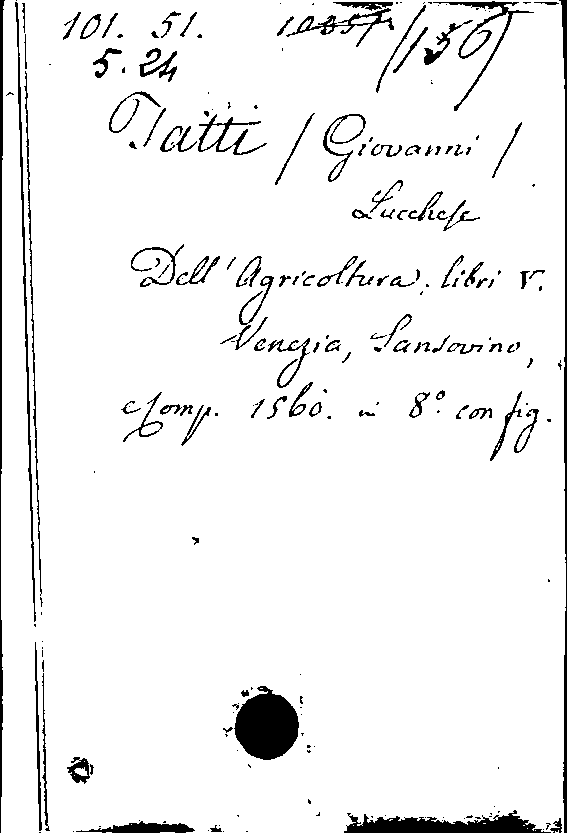 101. 51. (156)
5.24
Tatti / Giovanni /
Lucchese
Dell' Agricoltura. libri V.
Venezia, Sansovino,
e comp. 1560. in 8.° con fig.